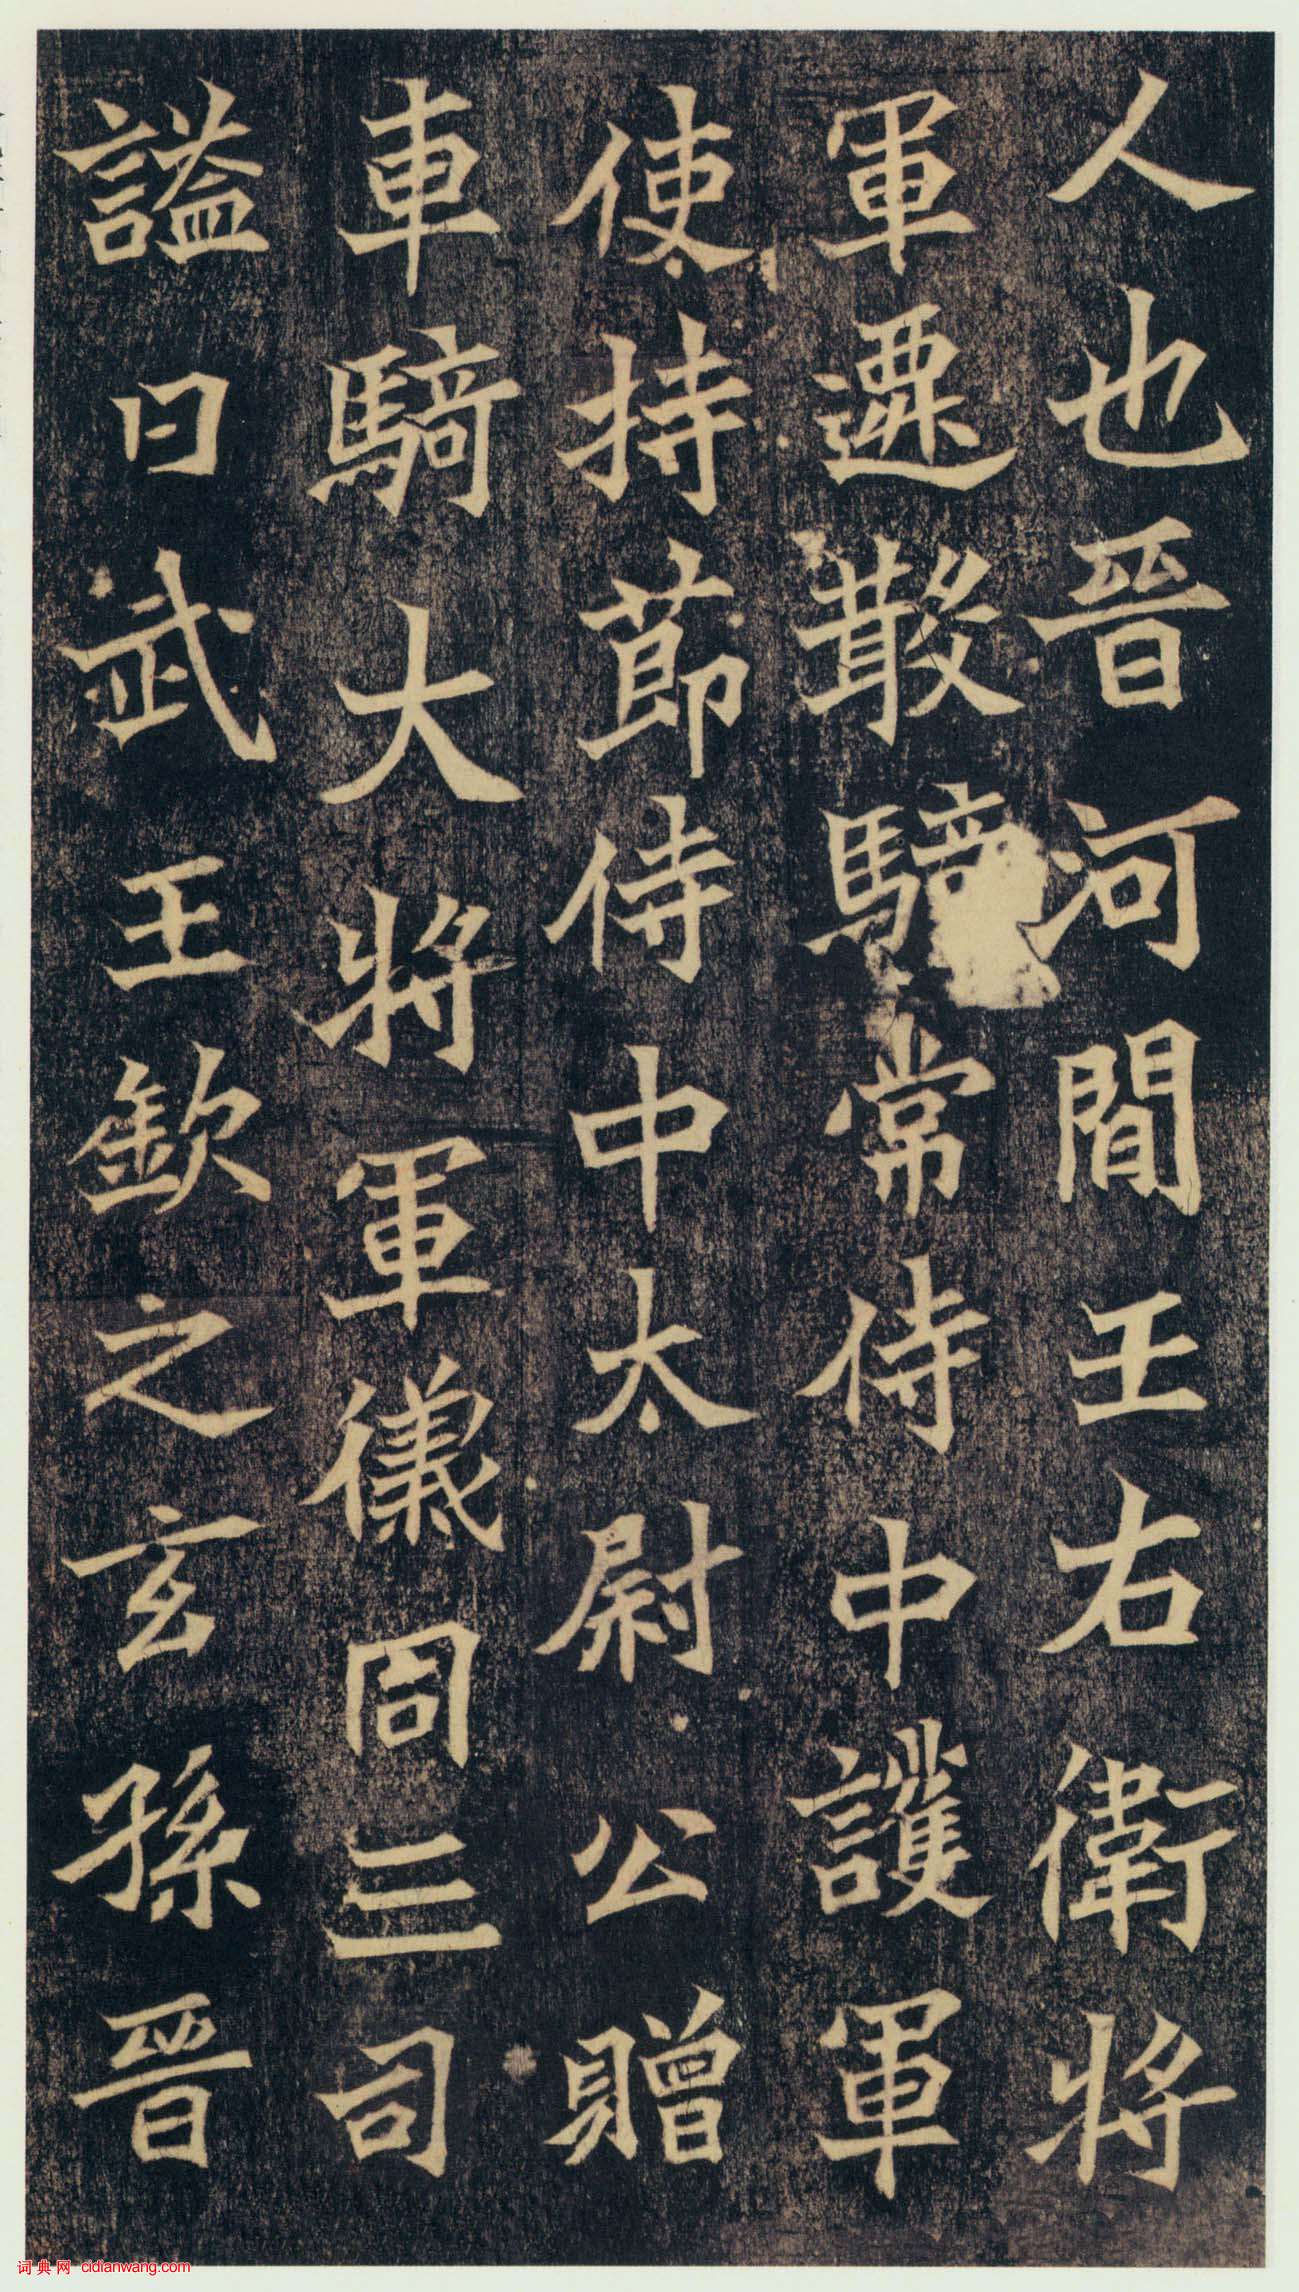 人也晉河間王右衛將
軍遷散騎常侍中護軍
使持節侍中太尉公贈
車騎大將軍儀同三司
諡曰武王欽之玄孫晉
词典网 cidianwang.com